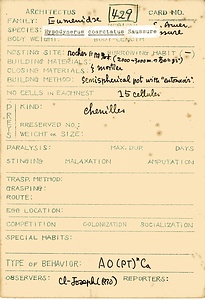 ARCHITECTUS 429 CARD NO.
FAMILY: Eumenidae
SPECIES: Hypodynerus coarctatus Saussure
BODY WEIGHT: BODY LENGTH:
NESTING SITE: rocher HABIT (—)
BUILDING MATERIALS:
CLOSING MATERIALS: & mortier
BUILDING METHOD: Semispherical pot with "entonnoir"
NO CELLS IN EACH NEST 15 cellules
KIND: chenilles
PRESERVED NO.:
WEIGHT OR SIZE:
PARALYSIS: MAX. DUR. DAYS
STINGING MALAXATION AMPUTATION
TRASP. METHOD:
GRASPING:
ROUTE:
EGG LOCATION:
COMPETITION COLONIZATION SOCIALIZATION
SPECIAL HABITS:
TYPE OF BEHAVIOR: AO(PT)ⁿCa
OBSERVERS: Cl-Joseph (1970) REPORTERS: